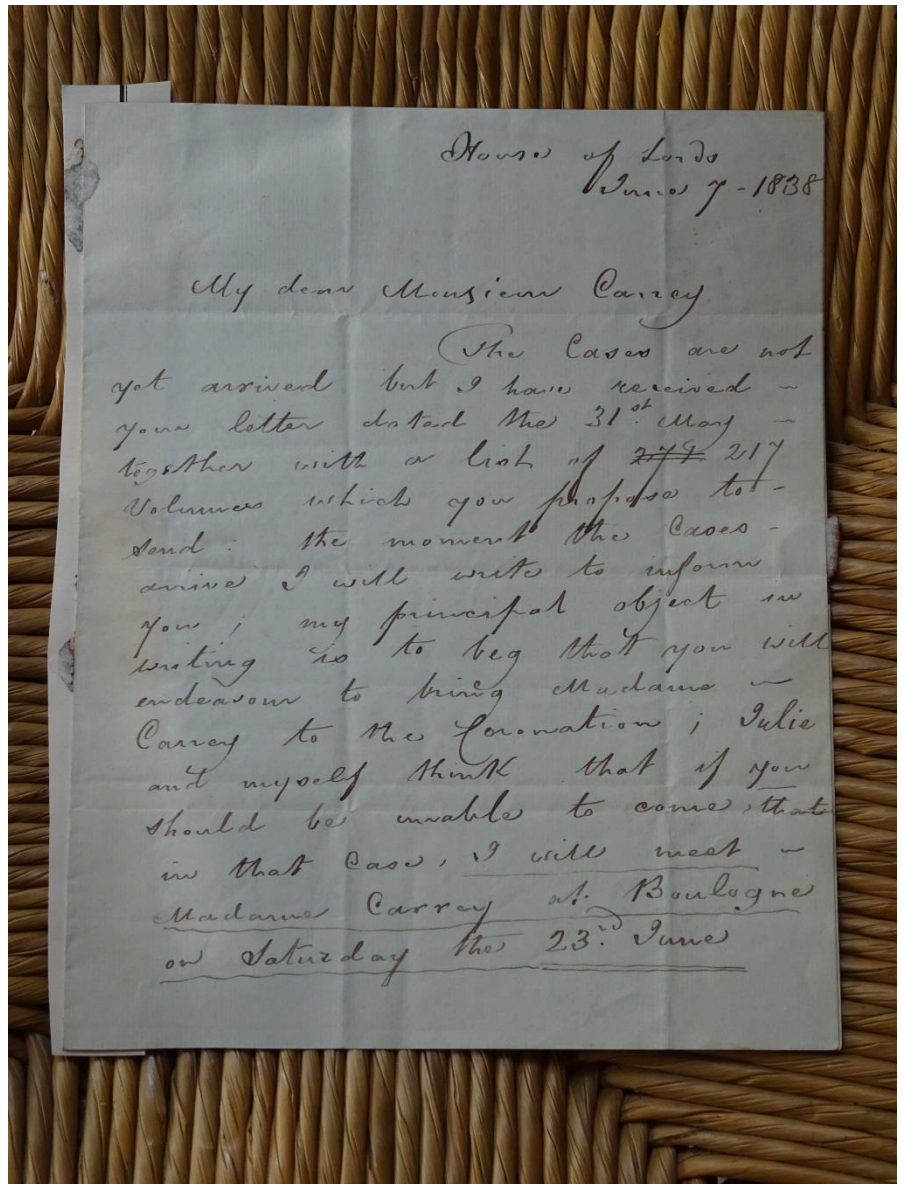 House of Lords
June 7 - 1838
My dear Monsieur Carrey
The Cases are not
yet arrived but I have received -
your letter dated the 31st. May -
together with a list of 279 217
Volumes which you propose to -
send. the moment the Cases -
arrive I will write to inform
you; my principal object in
writing is to beg that you will
endeavour to bring Madame -
Carrey to the Coronation; Julie
and myself think that if you
should be unable to come, that
in that Case, I will meet -
Madame Carrey at Boulogne
on Saturday the 23rd. June